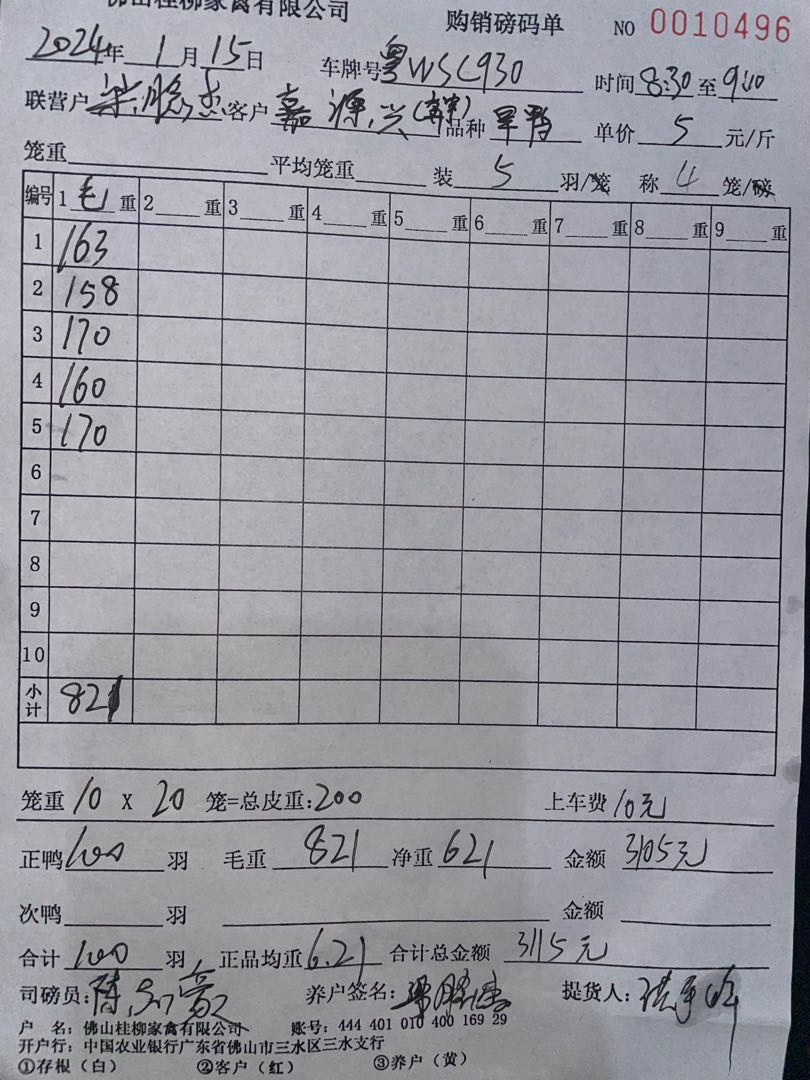 佛山桂柳家禽有限公司 购销磅码单 NO 0010496
2024年 1月 15日 车牌号 粤WSC930 时间 8:30 至 9:10
联营户 客户 嘉源兴 品种 旱鸭 单价 5 元/斤
笼重 平均笼重 装 5 羽/笼 称 4 笼/磅
编号 1 毛 重 2 重 3 重 4 重 5 重 6 重 7 重 8 重 9 重
1 163
2 158
3 170
4 160
5 170
6
7
8
9
10
小计 821
笼重 10 X 20 笼=总皮重:200 上车费 10元
正鸭 100 羽 毛重 821 净重 621 金额 3105元
次鸭 羽 金额
合计 100 羽 正品均重 6.21 合计总金额 3115元
司磅员: 养户签名: 提货人:
户 名:佛山桂柳家禽有限公司 账号:444 401 010 400 169 29
开户行:中国农业银行广东省佛山市三水区三水支行
①存根(白) ②客户(红) ③养户(黄)